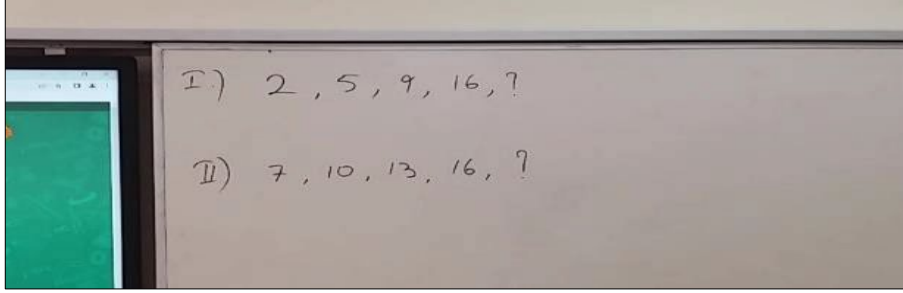 I.) 2, 5, 9, 16, ?
II) 7, 10, 13, 16, ?